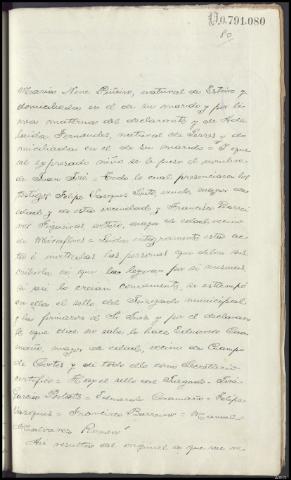 0.791.080
80
María Nine Piñeiro, natural de y
domiciliada en el de su marido y por lí-
nea materna del declarante y de Ade-
laida Fernandez, natural de y do-
miciliada en el de su marido = Y que
al expresado niño se le puso el nombre
de Juan José = Todo lo cual presenciaron los
testigos Felipe Vazquez viudo, mayor de
edad y de esta vecindad y Francisco Barre-
ros Figueroa soltero, mayor de edad, vecino
de Miraflores = Leida integramente esta ac-
ta é invitadas las personas que deben sus-
cribirla á que la leyeran por si mismas
si asi lo creian conveniente, se estampó
en ella el sello del Juzgado municipal
y la firmaron el Sr Juez y por el declaran-
te que dice no sabe lo hace Eduardo Caa-
maño, mayor de edad, vecino de Campo
de Cortes y de todo ello como Secretario
certifico = Hay el sello del Juzgado = José
García = Eduardo Caamaño = Felipe
Vazquez = Francisco Barreros = Manuel
Malvarez
Así resulta del original á que me re-